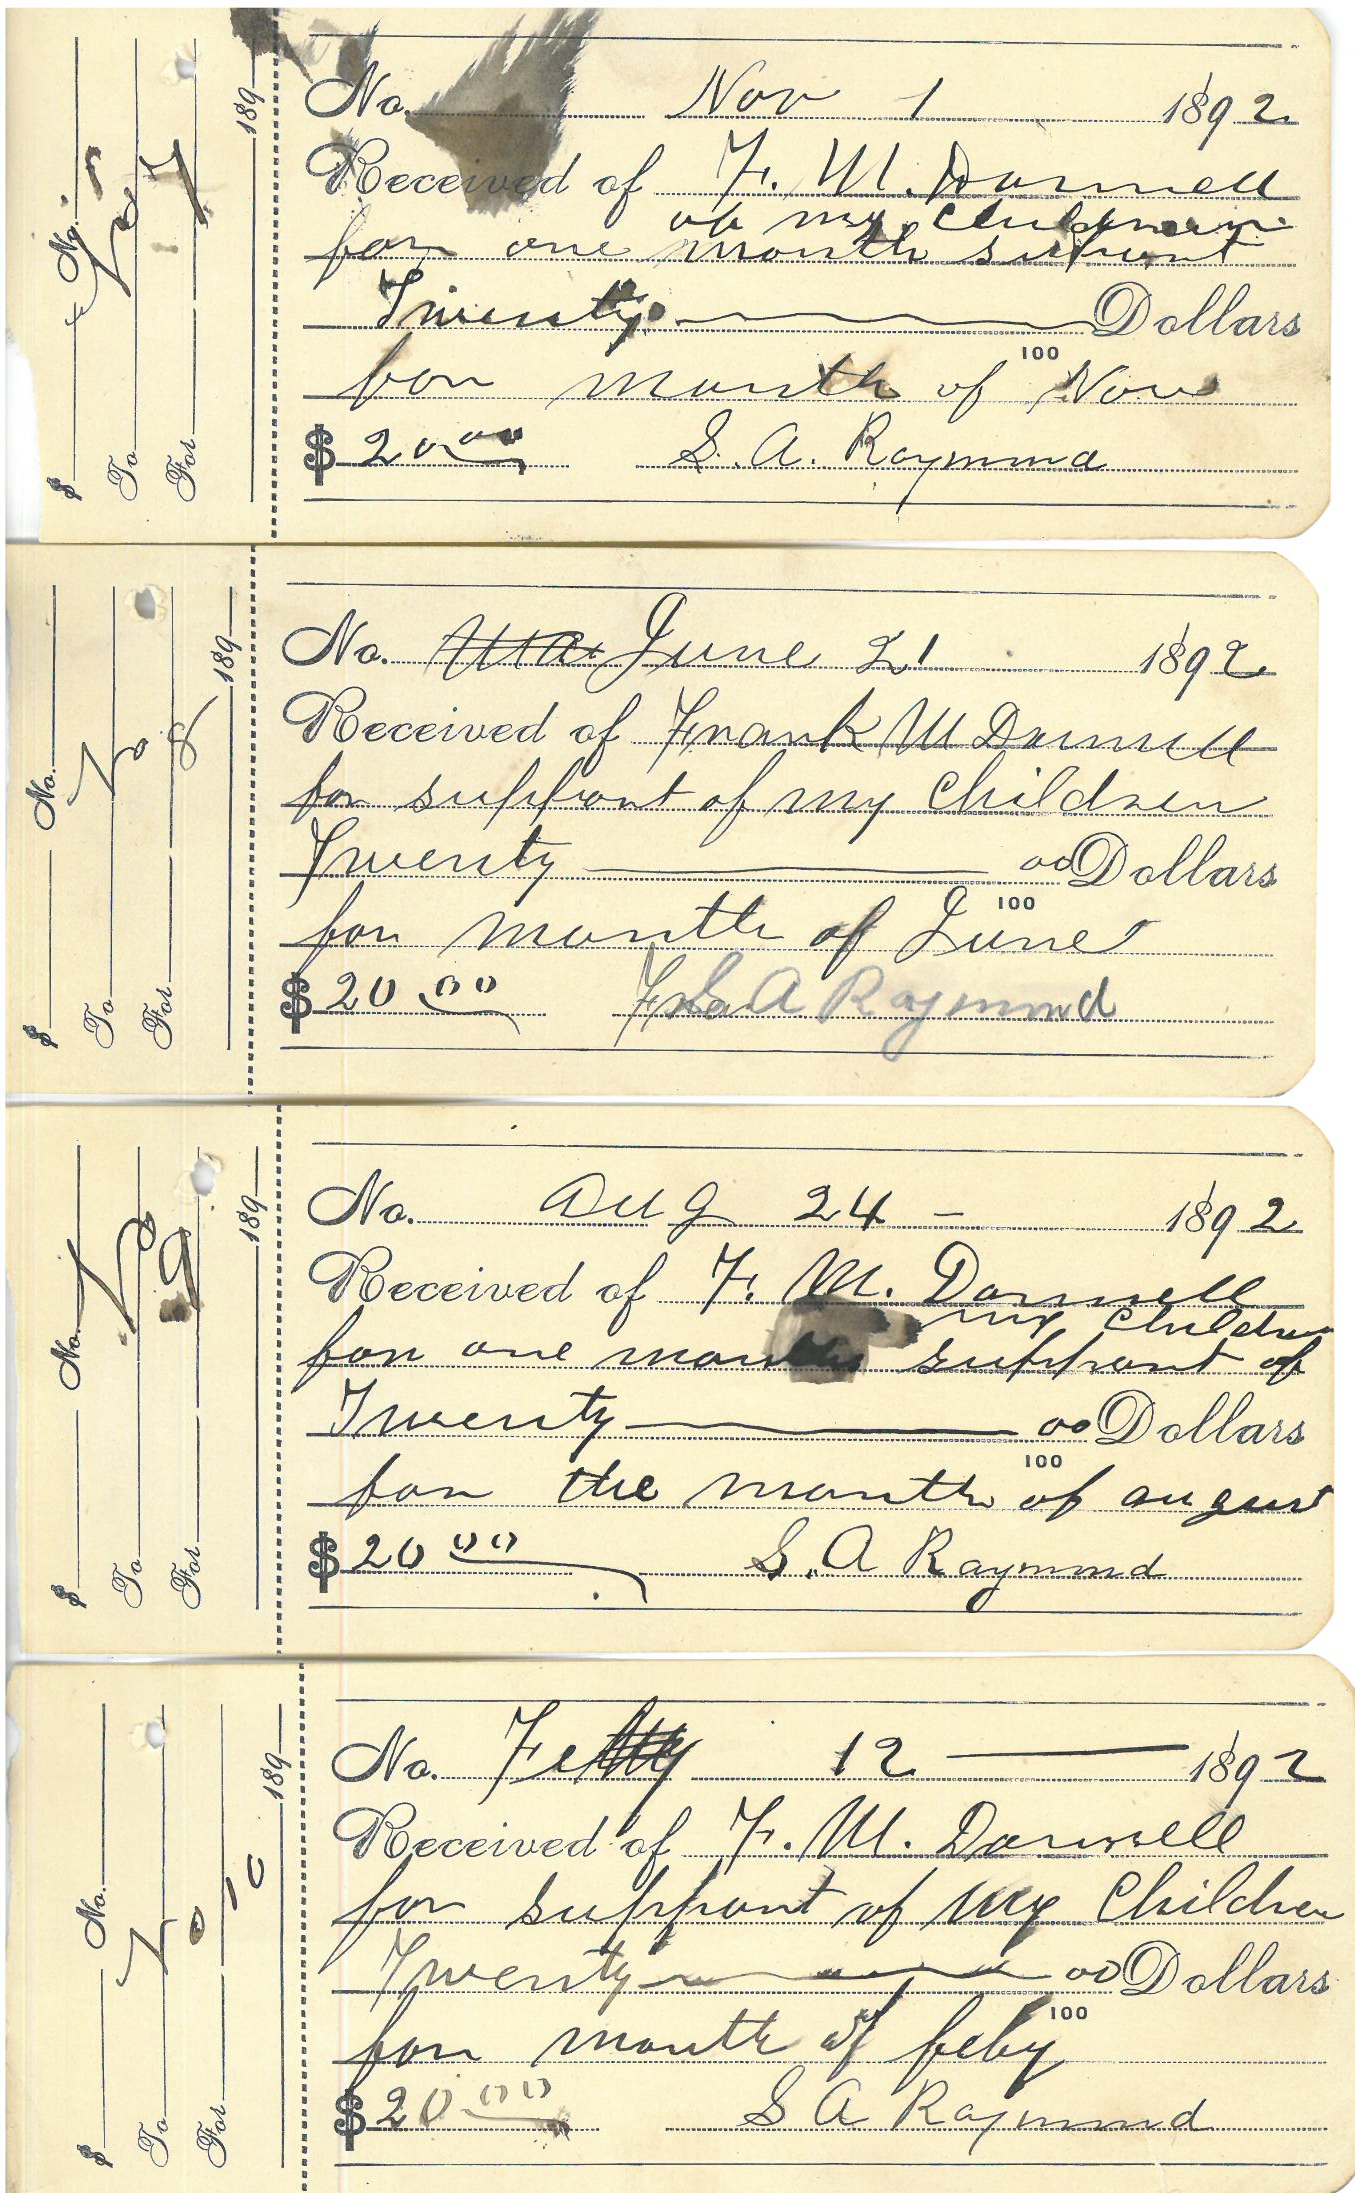 No. Nov 1 1892
Received of F. M. Darnell
of my Children
for one month support
Twenty Dollars
100
for month of Nov
$ 20 00 S. A. Raymond
$ No.
To
For
189
No. June 21 1892
Received of Frank M Darnell
for support of my Children
Twenty 00 Dollars
100
for month of June
$ 20 00 S A Raymond
$ No.
To
For
189
No. Aug 24 - 1892
Received of F. M. Darnell
my Children
for one month support of
Twenty 00 Dollars
100
for the month of august
$ 20 00 S. A Raymond
$ No.
To
For
189
No. 12 1892
Received of F. M. Darnell
for support of my Children
Twenty 00 Dollars
100
for month of feby
$ 20 00 S A Raymond
$ No.
To
For
189